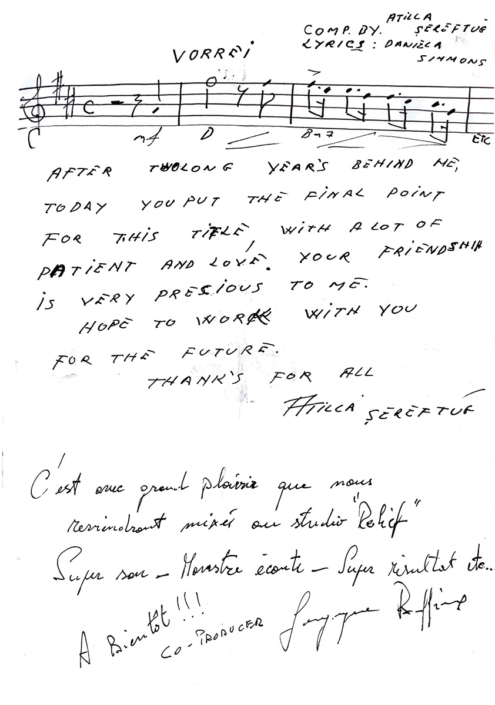 VORREI
ATILLA
COMP. BY. ŞEREFTUĞ
LYRICS : DANIELA
SIMMONS
C
mf D Bm7 ETC
AFTER TWO LONG YEAR'S BEHIND ME,
TODAY YOU PUT THE FINAL POINT
FOR THIS TITLE, WITH A LOT OF
PATIENT AND LOVE. YOUR FRIENDSHIP
IS VERY PRESIOUS TO ME.
HOPE TO WORK WITH YOU
FOR THE FUTURE.
THANK'S FOR ALL
ATILLA ŞEREFTUĞ
C'est avec grand plaisir que nous
reviendront mixés au studio "Relief"
Super son – Monstre écoute – Super résultat etc..
A Bientôt !!!
CO-PRODUCER